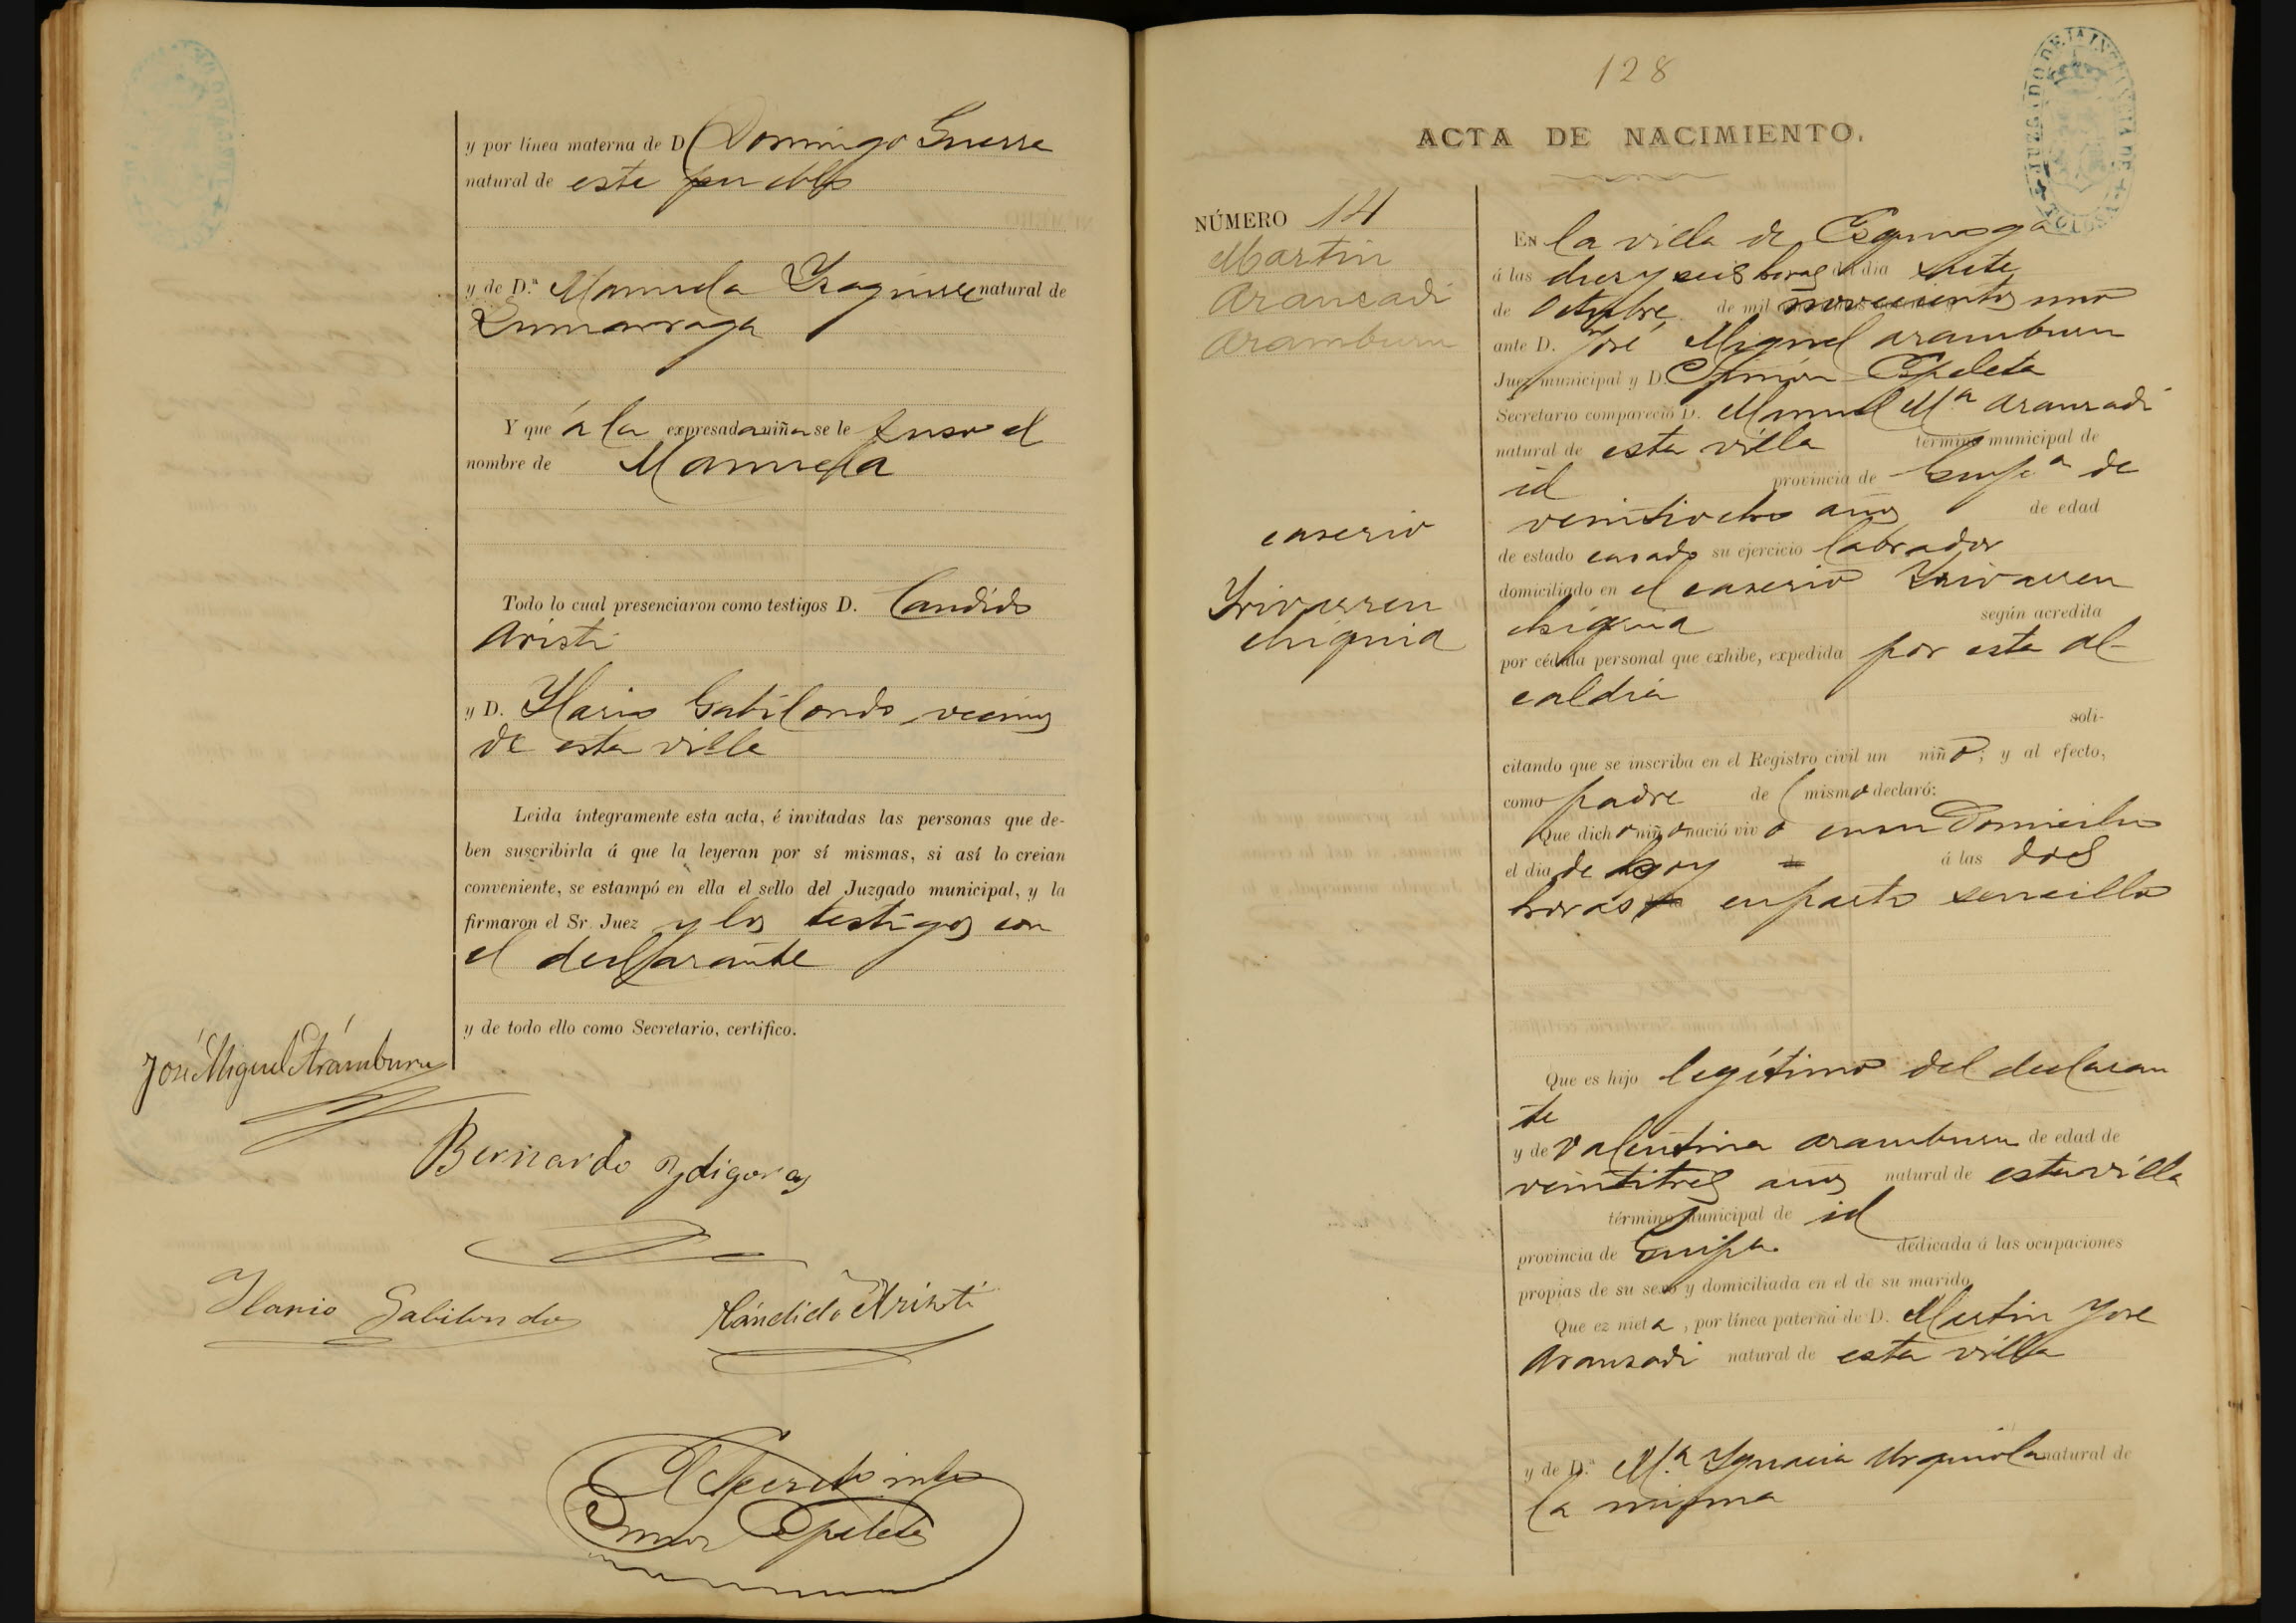 y por línea materna de D Domingo Guerra
natural de este pueblo
y de D.ª Manuela Yzaguirre natural de
Zumarraga
Y que á la expresada niña se le puso el
nombre de Manuela
Todo lo cual presenciaron como testigos D. Candido
Aristi
y D. Ylario Gabilondo, vecinos
de esta villa
Leida íntegramente esta acta, é invitadas las personas que de-
ben suscribirla á que la leyeran por sí mismas, si así lo creian
conveniente, se estampó en ella el sello del Juzgado municipal, y la
firmaron el Sr. Juez y los testigos con
el declarante
y de todo ello como Secretario, certifico.
José Miguel Arámburu
Bernardo Ydigoras
Ylario Gabilondo
Cándido Aristi
Simon Espeleta
128
ACTA DE NACIMIENTO.
NÚMERO 14
Martin
Aranzadi
Aramburu
caserio
Yrivarren
chiquia
En la villa de Ezquioga
á las diez y seis horas del dia siete
de Octubre de mil novecientos uno
ante D. José Miguel Aramburu
Juez municipal y D. Simón Espeleta
Secretario compareció D. Manuel Mª Aranzadi
natural de esta villa término municipal de
id provincia de Guipª de
veintiocho años de edad
de estado casado su ejercicio labrador
domiciliado en el caserio Yrivarren
chiquia según acredita
por cédula personal que exhibe, expedida por esta al-
caldia
soli-
citando que se inscriba en el Registro civil un niño; y al efecto,
como padre del mismo declaró:
Que dicho niño nació vivo en su domicilio
el dia de hoy á las dos
horas en parto sencillo
Que es hijo legítimo del declaran
te
y de Valentina Aramburu de edad de
veintitres años natural de esta villa
término municipal de id
provincia de Guipª dedicada á las ocupaciones
propias de su sexo y domiciliada en el de su marido
Que ez nieta, por línea paterna de D. Martin Jose
Aranzadi natural de esta villa
y de D.ª Mª Ygnacia Urquiola natural de
la misma